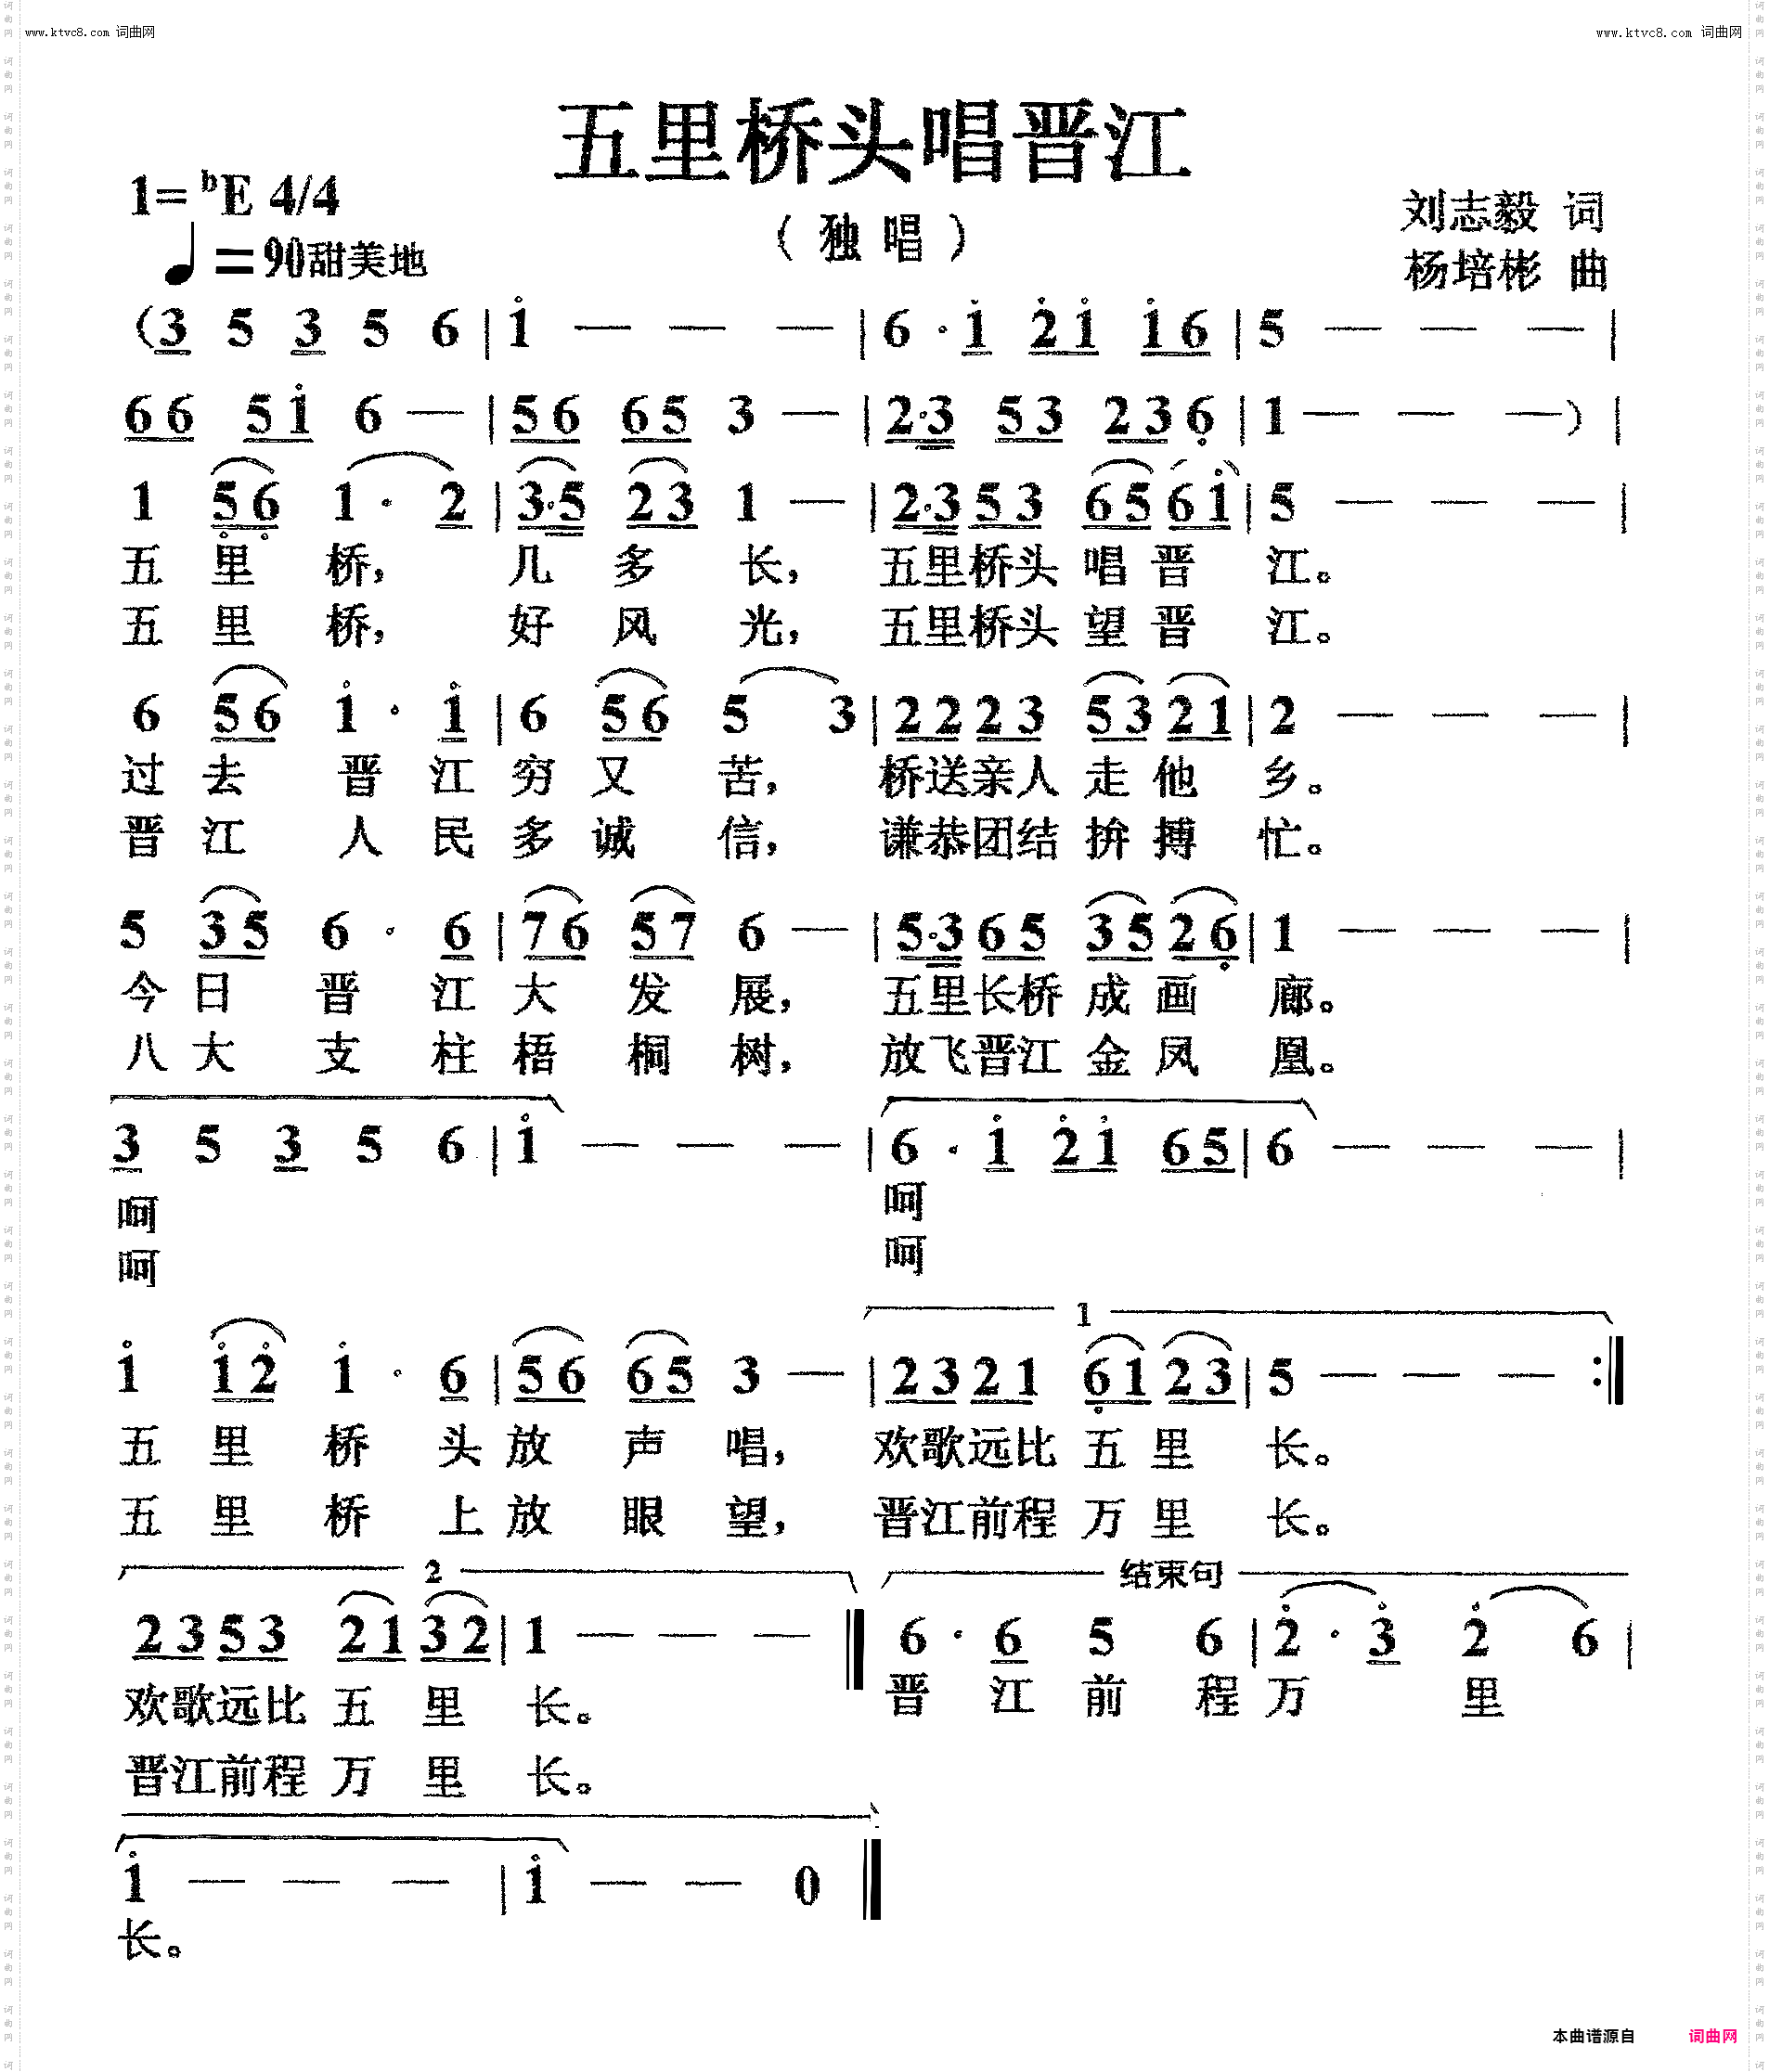 www.ktvc8.com 词曲网
www.ktvc8.com 词曲网
五里桥头唱晋江
1= ᵇE 4/4
（独唱）
刘志毅 词
♩=90甜美地
杨培彬 曲
(3 5 3 5 6 | 1 — — — | 6 · 1 2 1 1 6 | 5 — — — |
6 6 5 1 6 — | 5 6 6 5 3 — | 2·3 5 3 2 3 6 | 1 — — — ) |
1 5 6 1 · 2 | 3·5 2 3 1 — | 2·3 5 3 6 5 6 1 | 5 — — — |
五 里 桥， 几 多 长， 五里桥头 唱 晋 江。
五 里 桥， 好 风 光， 五里桥头 望 晋 江。
6 5 6 1 · 1 | 6 5 6 5 3 | 2 2 2 3 5 3 2 1 | 2 — — — |
过 去 晋 江 穷 又 苦， 桥送亲人 走 他 乡。
晋 江 人 民 多 诚 信， 谦恭团结 拚 搏 忙。
5 3 5 6 · 6 | 7 6 5 7 6 — | 5·3 6 5 3 5 2 6 | 1 — — — |
今 日 晋 江 大 发 展， 五里长桥 成 画 廊。
八 大 支 柱 梧 桐 树， 放飞晋江 金 凤 凰。
3 5 3 5 6 | 1 — — — | 6 · 1 2 1 6 5 | 6 — — — |
呵 呵
呵 呵
1
1 1 2 1 · 6 | 5 6 6 5 3 — | 2 3 2 1 6 1 2 3 | 5 — — — :||
五 里 桥 头 放 声 唱， 欢歌远比 五 里 长。
五 里 桥 上 放 眼 望， 晋江前程 万 里 长。
2 结束句
2 3 5 3 2 1 3 2 | 1 — — — || 6 · 6 5 6 | 2 · 3 2 6 |
欢歌远比 五 里 长。 晋 江 前 程 万 里
晋江前程 万 里 长。
1 — — — | 1 — — 0 ||
长。
本曲谱源自 词曲网